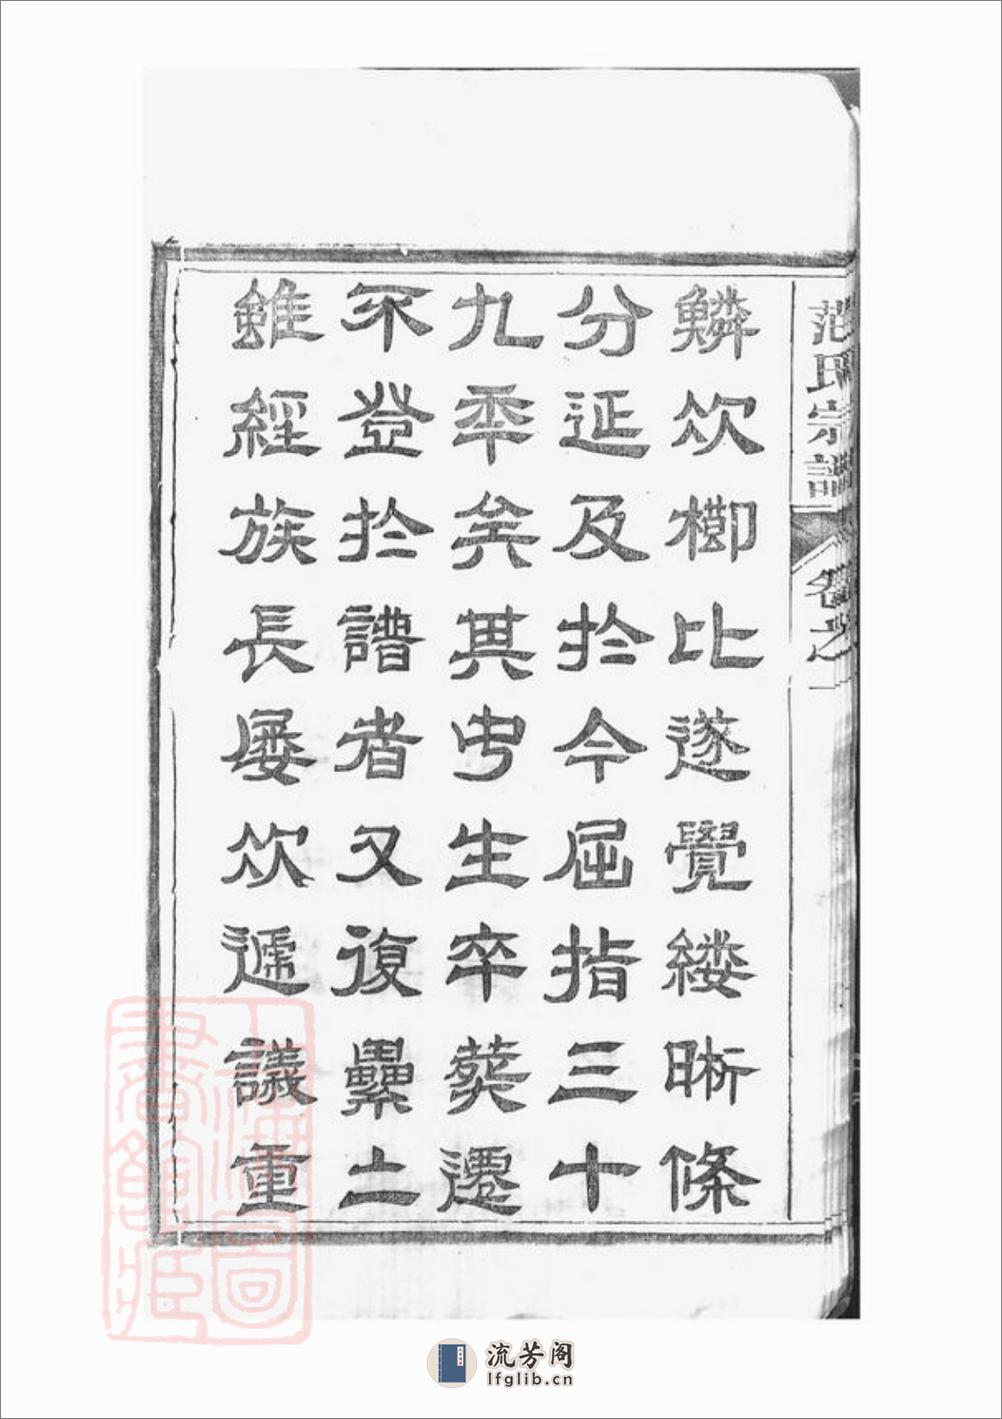 范氏宗譜 卷之一
鱗次櫛比遂覺縷晰條
分延及於今屈指三十
九年矣其中生卒葬遷
不登於譜者又復纍二
雖經族長屡次遞議重
上海圖書館藏
流芳阁
lfglib.cn